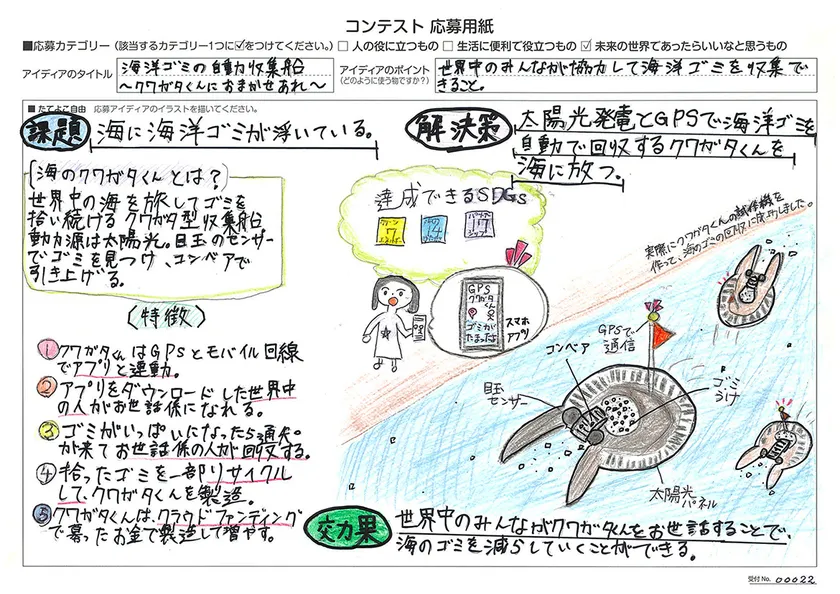 コンテスト 応募用紙
■応募カテゴリー (該当するカテゴリー1つに☑をつけてください。) □ 人の役に立つもの □ 生活に便利で役立つもの ☑ 未来の世界であったらいいなと思うもの
アイディアのタイトル
海洋ゴミの自動収集船
〜クワガタくんにおまかせあれ〜
アイディアのポイント
(どのように使う物ですか?)
世界中のみんなが協力して海洋ゴミを収集で
きること。
■ たてよこ自由 応募アイディアのイラストを描いてください。
課題
海に海洋ゴミが浮いている。
解決策
太陽光発電とGPSで海洋ゴミを
自動で回収するクワガタくんを
海に放つ。
(海のクワガタくんとは?)
世界中の海を旅してゴミを
拾い続けるクワガタ型収集船
動力源は太陽光。目玉のセンサー
でゴミを見つけ、コンベアで
引き上げる。
達成できるSDGs
7
14
17
(特徴)
1 クワガタくんはGPSとモバイル回線
でアプリと連動。
2 アプリをダウンロードした世界中
の人がお世話係になれる。
3 ゴミがいっぱいになったら通知
が来てお世話係の人が回収する。
4 拾ったゴミを一部リサイクル
して、クワガタくんを製造。
5 クワガタくんは、クラウドファンディング
で募ったお金で製造して増やす。
GPS
クワガタ
くん
ゴミが
たまったよ
スマホ
アプリ
実際にクワガタくんの試作機を
作って、海のゴミの回収に成功しました。
GPSで
通信
コンベア
目玉
センサー
ゴミ
うけ
太陽光
パネル
効果
世界中のみんながクワガタくんをお世話することで、
海のゴミを減らしていくことができる。
受付No. 00022